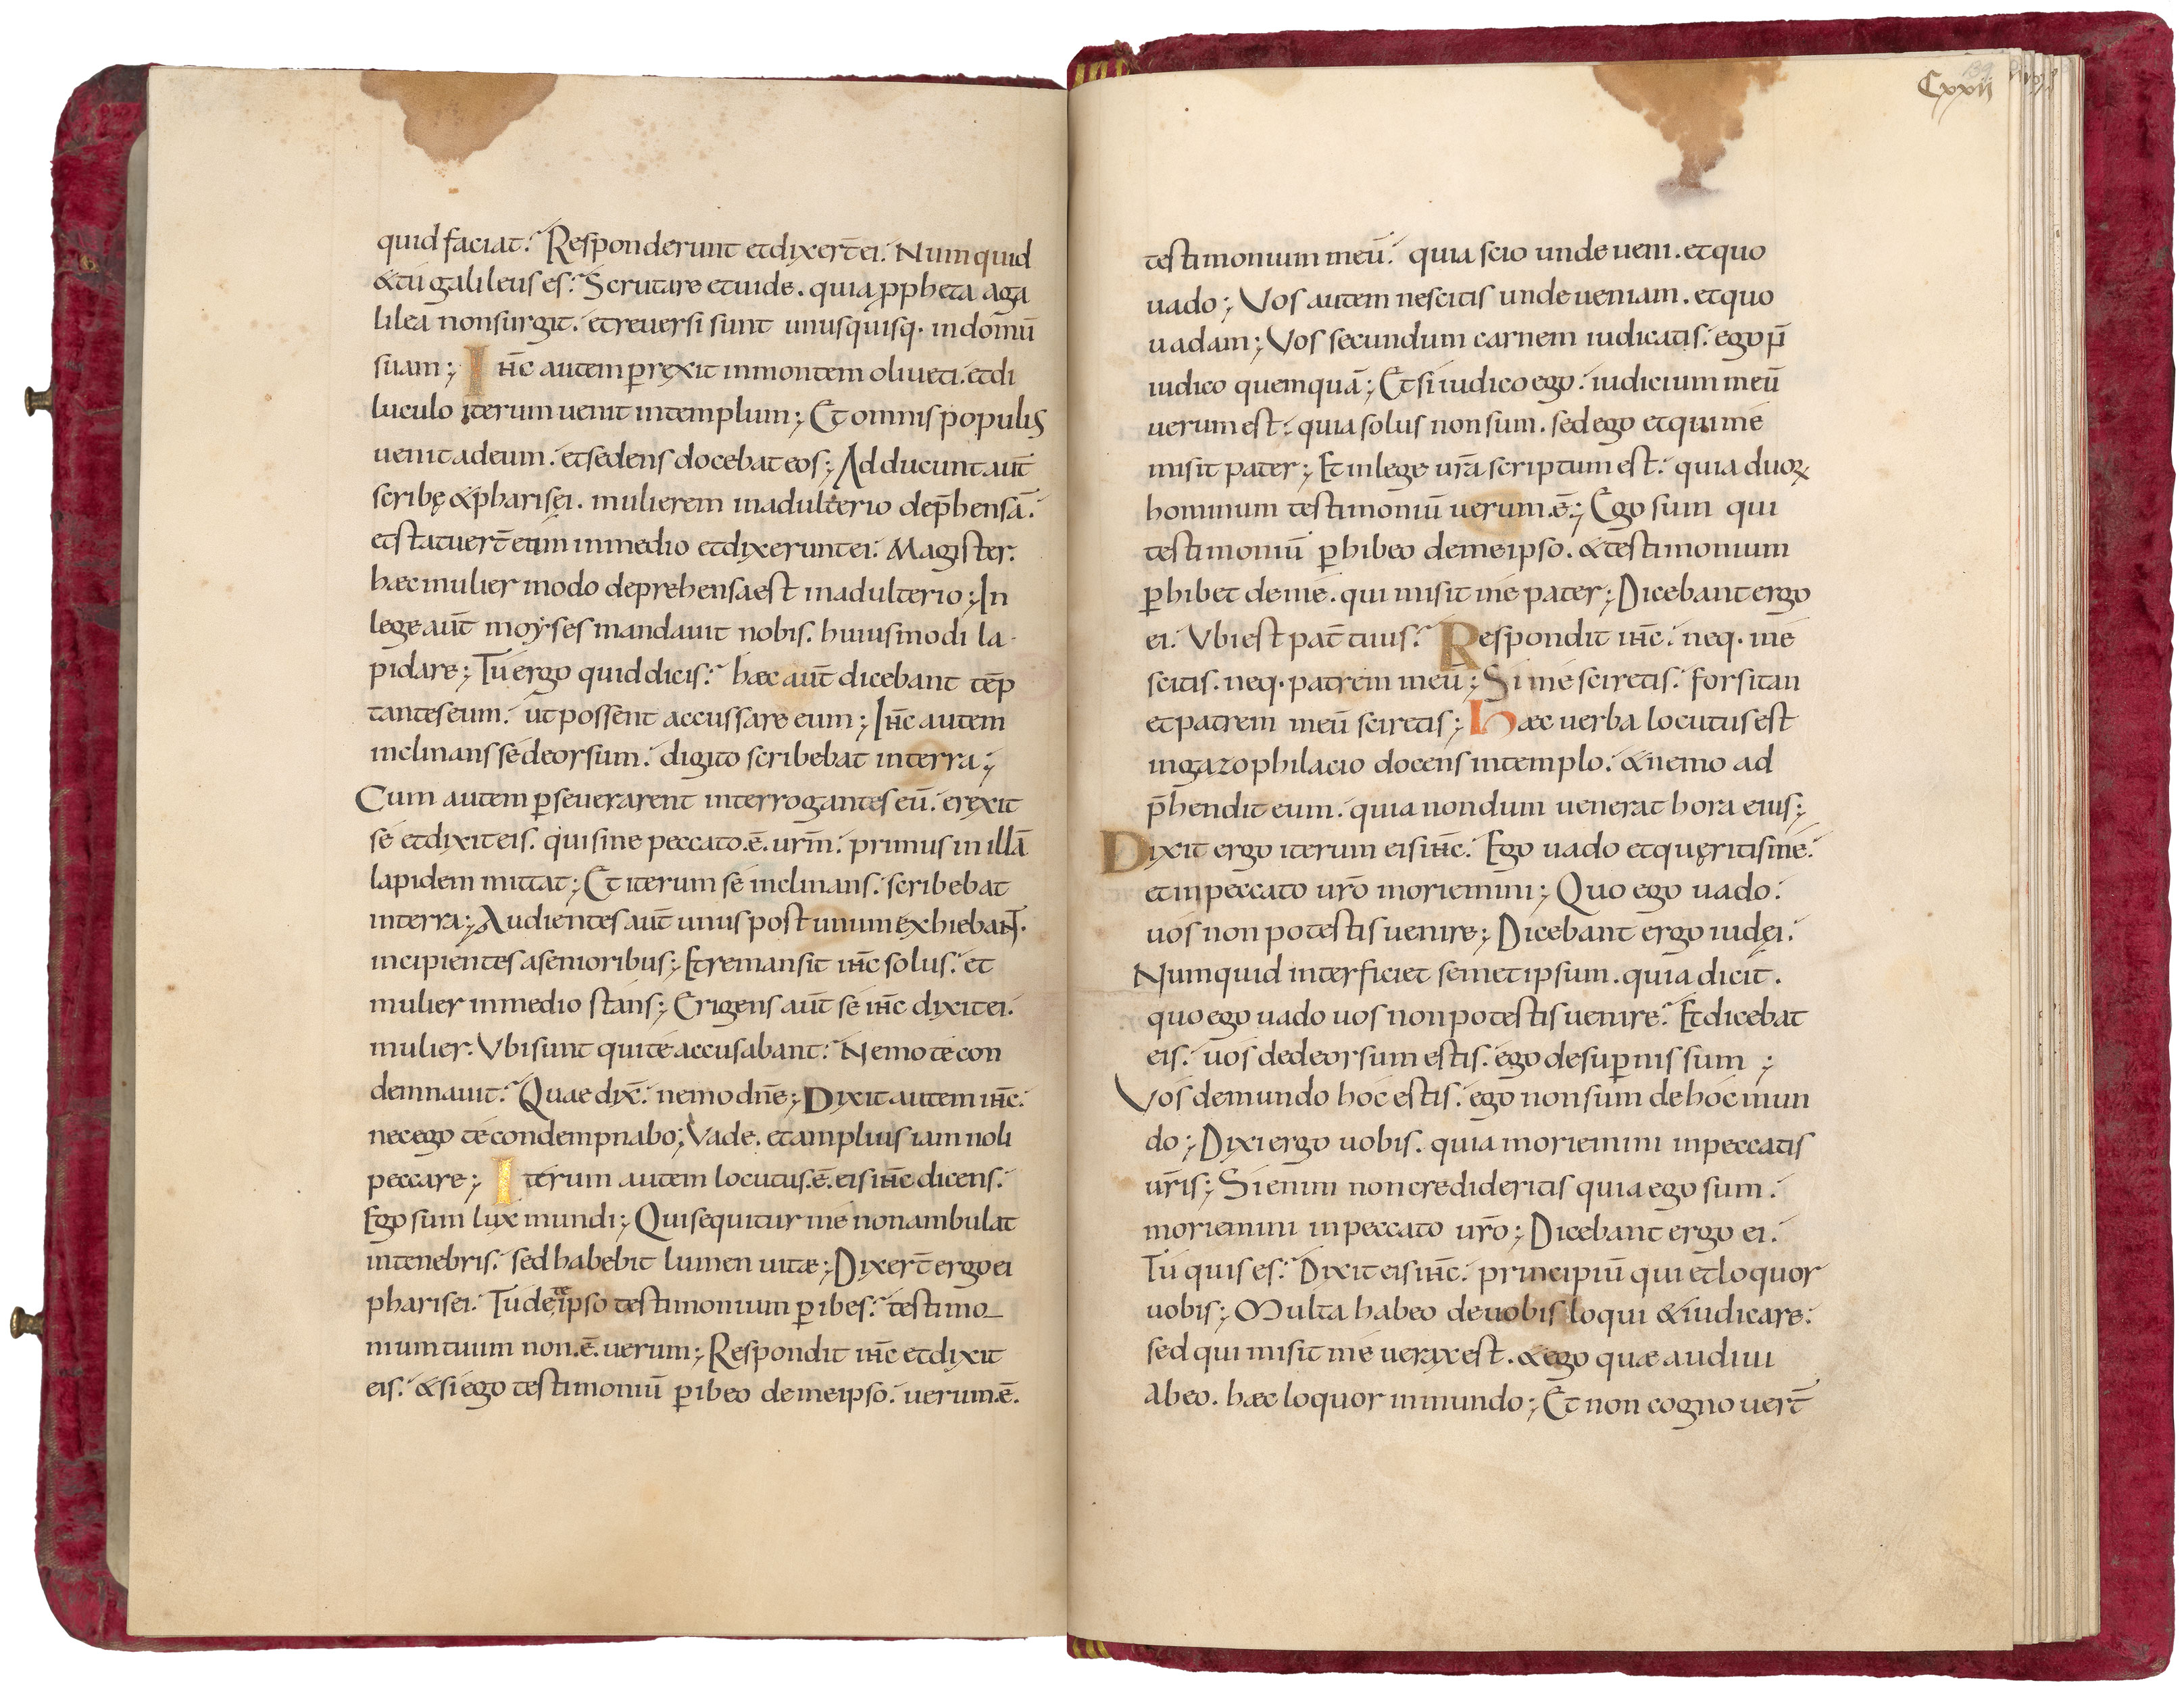 quid faciat. Responderunt et dixert̄ ei. Numquid
& tu galileus es. Scrutare et uide. quia ꝓpheta aga
lilea non surgit. et reuersi sunt unusquisq· in domū
suam; Iħc autem perrexit in montem oliueti. et di
luculo iterum uenit in templum; Et omnis populus
uenit ad eum. et sedens docebat eos; Adducunt aut̄
scribę & pharisęi. mulierem in adulterio dep̄hensā.
et statuert̄ eum in medio et dixerunt ei. Magister.
hæc mulier modo deprehensa est in adulterio; In
lege aut̄ moyses mandauit nobis. huiusmodi la-
pidare; Tu ergo quid dicis. hæc aut̄ dicebant tēp
tantes eum. ut possent accussare eum; Iħc autem
inclinans se deorsum. digito scribebat in terra;
Cum autem ꝑseuerarent interrogantes eū. erexit
se et dixit eis. qui sine peccato .ē. urm̄. primus in illā
lapidem mittat; Et iterum se inclinans. scribebat
in terra; Audientes aut̄ unus post unum exhiebant.
incipientes a senioribus; Et remansit iħc solus. et
mulier in medio stans; Erigens aut̄ se iħc dixit ei.
mulier. Vbi sunt qui te accusabant. Nemo te con
demnauit. Quae dix̄. nemo dn̄e; Dixit autem iħc.
nec ego te condempnabo; Vade. et amplius iam noli
peccare; Iterum autem locutus .ē. eis iħc dicens.
Ego sum lux mundi; Qui sequitur me non ambulat
in tenebris. sed habebit lumen uitæ; Dixert̄ ergo ei
pharisei. Tu de te ipso testimonium ꝑibes. testimo-
nium tuum non .ē. uerum; Respondit iħc et dixit
eis. & si ego testimoniū ꝑibeo de me ipso. uerum .ē.
Cxxij
testimonium meū. quia scio unde ueni. et quo
uado; Vos autem nescitis unde ueniam. et quo
uadam; Vos secundum carnem iudicatis. ego n̄
iudico quemquā; Et si iudico ego. iudicium meū
uerum est. quia solus non sum. sed ego et qui me
misit pater; Et in lege urā scriptum est. quia duoꝝ
hominum testimoniū uerum .ē.; Ego sum qui
testimoniū ꝑhibeo de me ipso. & testimonium
ꝑhibet de me. qui misit me pater; Dicebant ergo
ei. Vbi est pat̄ tuus. Respondit iħc. neq· me
scitis. neq· patrem meū; Si me sciretis. forsitan
et patrem meū sciretis; Hæc uerba locutus est
in gazophilacio docens in templo. & nemo ad
p̄hendit eum. quia nondum uenerat hora eius;
Dixit ergo iterum eis iħc. Ego uado et quęritis me.
et in peccato urō moriemini; Quo ego uado.
uos non potestis uenire; Dicebant ergo iudęi.
Numquid interficiet semet ipsum. quia dicit.
quo ego uado uos non potestis uenire. Et dicebat
eis. uos de deorsum estis. ego de supernis sum;
Vos de mundo hoc estis. ego non sum de hoc mun
do; Dixi ergo uobis. quia moriemini in peccatis
ur̄is; Si enim non credideritis quia ego sum.
moriemini in peccato urō; Dicebant ergo ei.
Tu quis es. Dixit eis iħc. principiū qui et loquor
uobis; Multa habeo de uobis loqui & iudicare.
sed qui misit me uerax est. & ego quæ audiui
abeo. hæc loquor in mundo; Et non cognouert̄